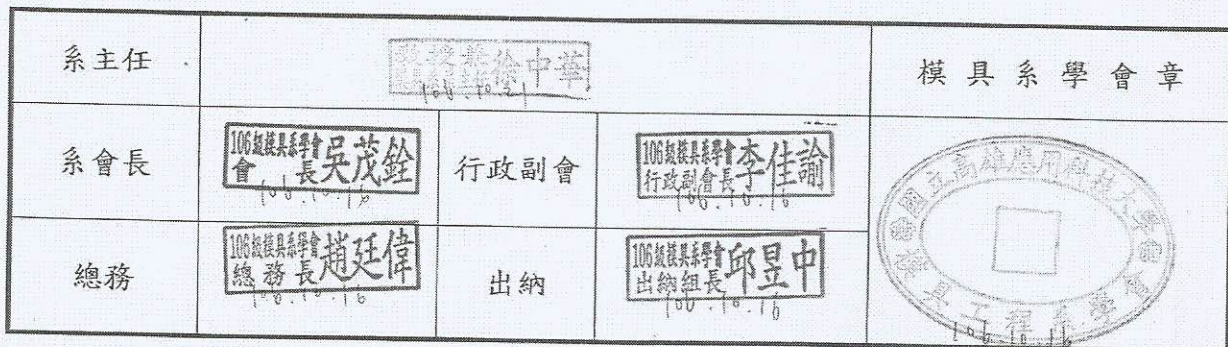 系主任
教授兼
徐中華
106.10.21
模具系學會章
系會長
106級模具系學會
會長 吳茂銓
106.10.16
行政副會
106級模具系學會
行政副會長 李佳諭
106.10.16
國立高雄應用科技大學
模具工程系學會
106.10.16
總務
106級模具系學會
總務長 趙廷偉
106.10.16
出納
106級模具系學會
出納組長 邱昱中
106.10.16